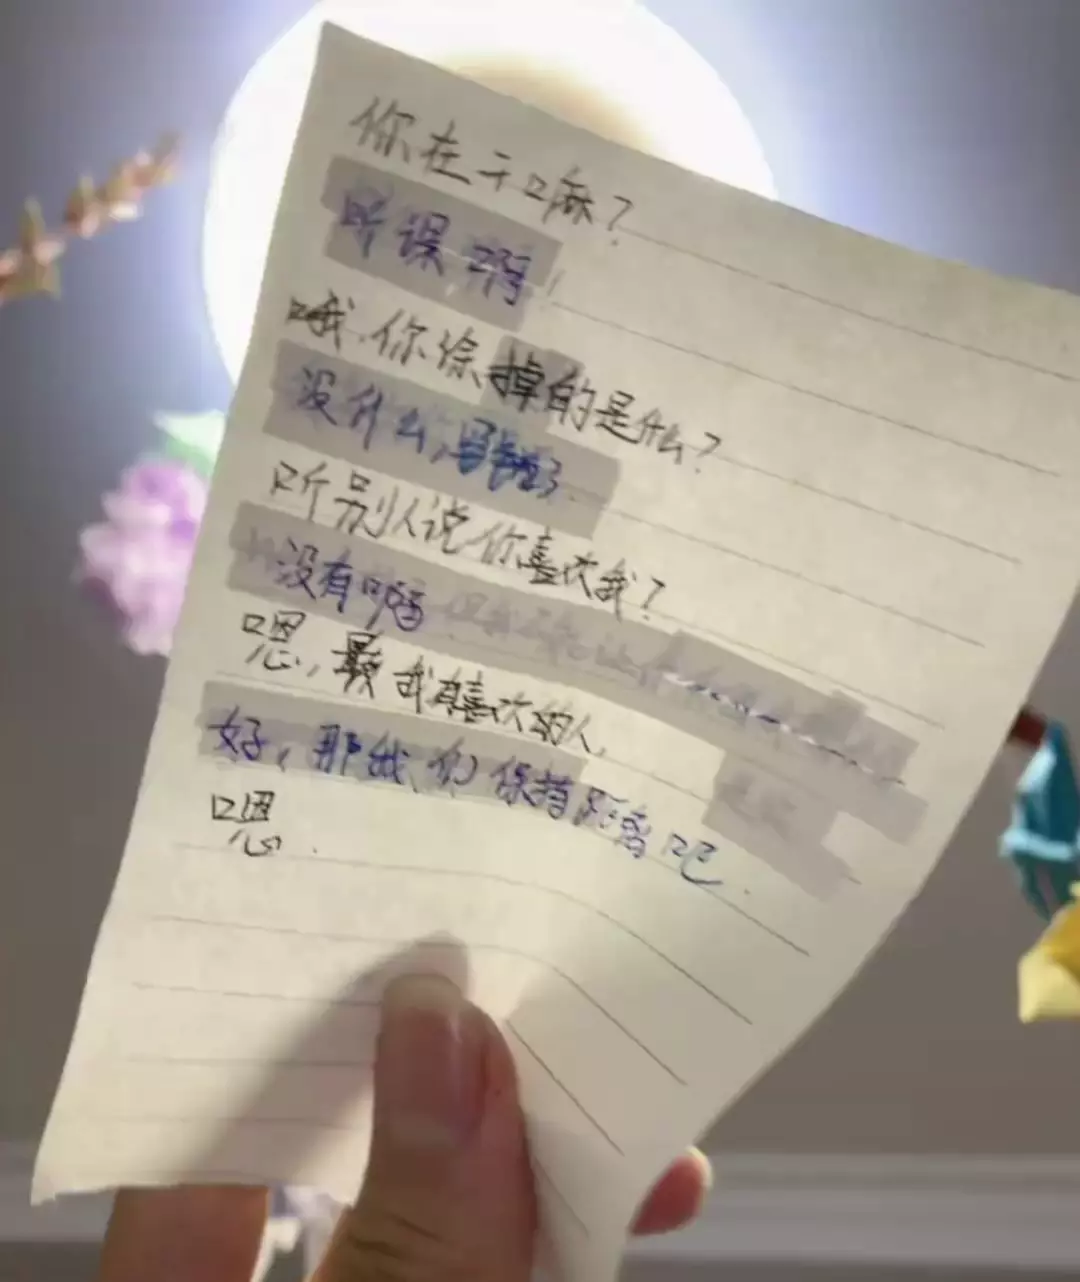 你在干嘛？
听课啊！
哦，你涂掉的是什么？
没什么，写错了
听别人说你喜欢我？
没有啊
嗯，我有喜欢的人，
好，那我们保持距离吧．
嗯．